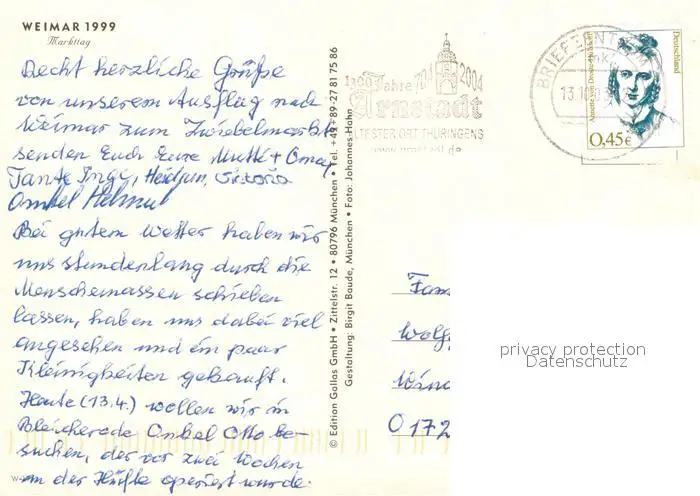 WEIMAR 1999
Markttag
Recht herzliche Grüße
von unserem Ausflug nach
Weimar zum Zwiebelmarkt
senden Euch Eure Mutti + Oma,
Tante Inge, Heidrun, Victoria
Onkel Helmut
Bei gutem Wetter haben wir
uns stundenlang durch die
Menschenmassen schieben
lassen, haben uns dabei viel
angesehen und ein paar
Kleinigkeiten gekauft.
Heute (13.4.) wollen wir in
Bleicherode Onkel Otto be-
suchen, der vor zwei Wochen
an der Hüfte operiert wurde.
© Edition Gallas GmbH • Zittelstr. 12 • 80796 München • Tel. +49+89-27 81 75 86
Gestaltung: Birgit Baude, München • Foto: Johannes Hahn
1300 Jahre 704 2004
Arnstadt
ÄLTESTER ORT THÜRINGENS
BRIEFZENTRUM
13.10
Annette von Droste-Hülshoff
Deutschland
0,45€
Fam
Wolfg
Win
0172
privacy protection
Datenschutz